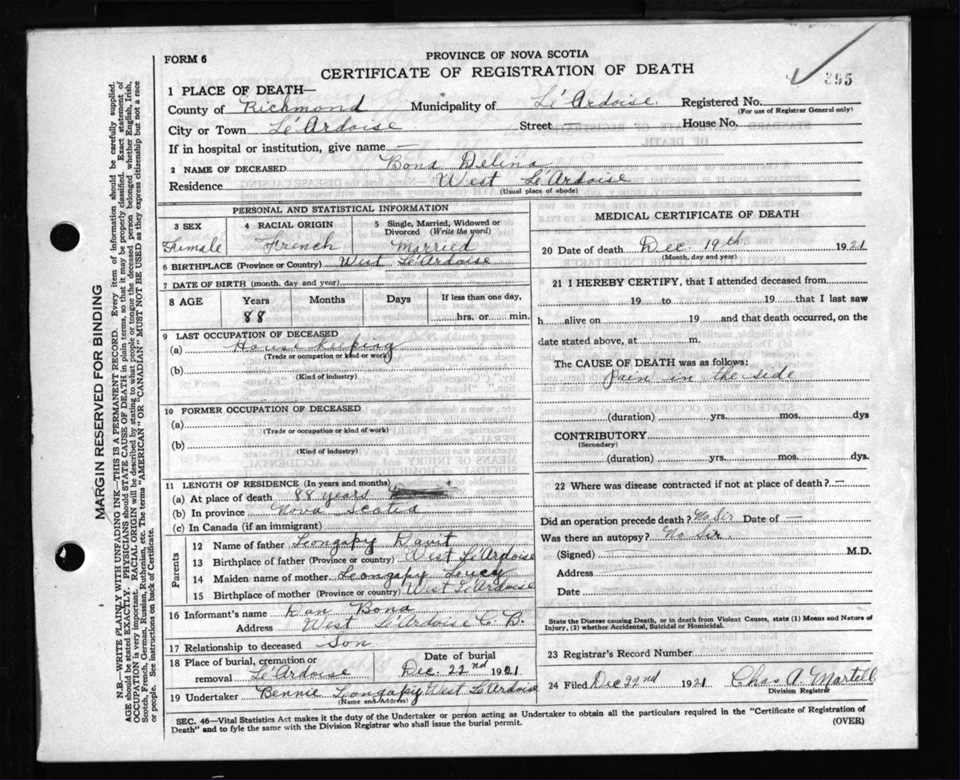 FORM 6
PROVINCE OF NOVA SCOTIA
CERTIFICATE OF REGISTRATION OF DEATH
395
1 PLACE OF DEATH—
County of Richmond Municipality of Lé'Ardoise Registered No.
(For use of Registrar General only)
City or Town Lé'Ardoise Street House No.
If in hospital or institution, give name —
2 NAME OF DECEASED Bona Delina
Residence West Lé'Ardoise
(Usual place of abode)
MARGIN RESERVED FOR BINDING
N.B.—WRITE PLAINLY WITH UNFADING INK—THIS IS A PERMANENT RECORD. Every item of information should be carefully supplied.
AGE should be stated EXACTLY. PHYSICIANS should STATE CAUSE OF DEATH in plain terms, so that it may be properly classified. Exact statement of
OCCUPATION is very important. RACIAL ORIGIN will be described by stating to what people or tongue the deceased person belonged whether English, Irish,
Scotch, French, German, Russian, Ruthenian, etc. The terms "AMERICAN" OR "CANADIAN" MUST NOT BE USED as they express citizenship but not a race
or people. See instructions on back of Certificate.
PERSONAL AND STATISTICAL INFORMATION
3 SEX 4 RACIAL ORIGIN 5 Single, Married, Widowed or Divorced (Write the word)
Fumale French Married
6 BIRTHPLACE (Province or Country) West Lé'Ardoise
7 DATE OF BIRTH (month, day and year)
8 AGE Years Months Days If less than one day,
88 hrs. or min.
9 LAST OCCUPATION OF DECEASED
(a) House Kuping
(Trade or occupation or kind or work)
(b)
(Kind of industry)
10 FORMER OCCUPATION OF DECEASED
(a)
(Trade or occupation or kind of work)
(b)
(Kind of industry)
11 LENGTH OF RESIDENCE (In years and months)
(a) At place of death 88 years
(b) In province Nova Scotia
(c) In Canada (if an immigrant)
Parents
12 Name of father Longapy Davit
13 Birthplace of father (Province or Country) West Lé'Ardoise
14 Maiden name of mother Longapy Lucy
15 Birthplace of mother (Province or Country) West Lé'Ardoise
16 Informant's name Dan Bona
Address West Lé'Ardoise C. B.
17 Relationship to deceased Son
18 Place of burial, cremation or removal Lé'Ardoise Date of burial Dic. 22nd 1921
19 Undertaker Bennie Longapy West Lé'Ardoise
(Name and Address)
MEDICAL CERTIFICATE OF DEATH
20 Date of death Dec. 19th 1921
(Month, day and year)
21 I HEREBY CERTIFY, that I attended deceased from
19 to 19 that I last saw
h alive on 19 and that death occurred, on
date stated above, at m.
The CAUSE OF DEATH was as follows:
Pain in the side
(duration) yrs. mos. dys
CONTRIBUTORY
(Secondary)
(duration) yrs. mos. dys.
22 Where was disease contracted if not at place of death? —
Did an operation precede death? No Sir Date of —
Was there an autopsy? No Sir
(Signed) — M.D.
Address —
Date —
State the Disease causing Death, or in death from Violent Causes, state (1) Means and Nature of
Injury, (2) whether Accidental, Suicidal or Homicidal.
23 Registrar's Record Number
24 Filed Dec 22nd 1921 Chas A. Martell
Division Registrar
SEC. 46—Vital Statistics Act makes it the duty of the Undertaker or person acting as Undertaker to obtain all the particulars required in the "Certificate of Registration of
Death" and to fyle the same with the Division Registrar who shall issue the burial permit. (OVER)